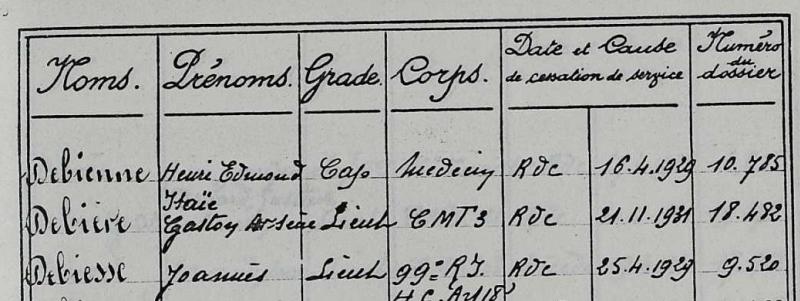 Noms. Prénoms. Grade. Corps. Date et Cause de cessation de service Numéro du dossier
Debienne Henri Edmond Cap Medecin Rdc 16.4.1929 10.785
Debière Isaïe Gaston Arsène Lieut CMT3 Rdc 21.11.1931 18.482
Debiesse Joannès Lieut 99e R.I. Rdc 25.4.1929 9.520